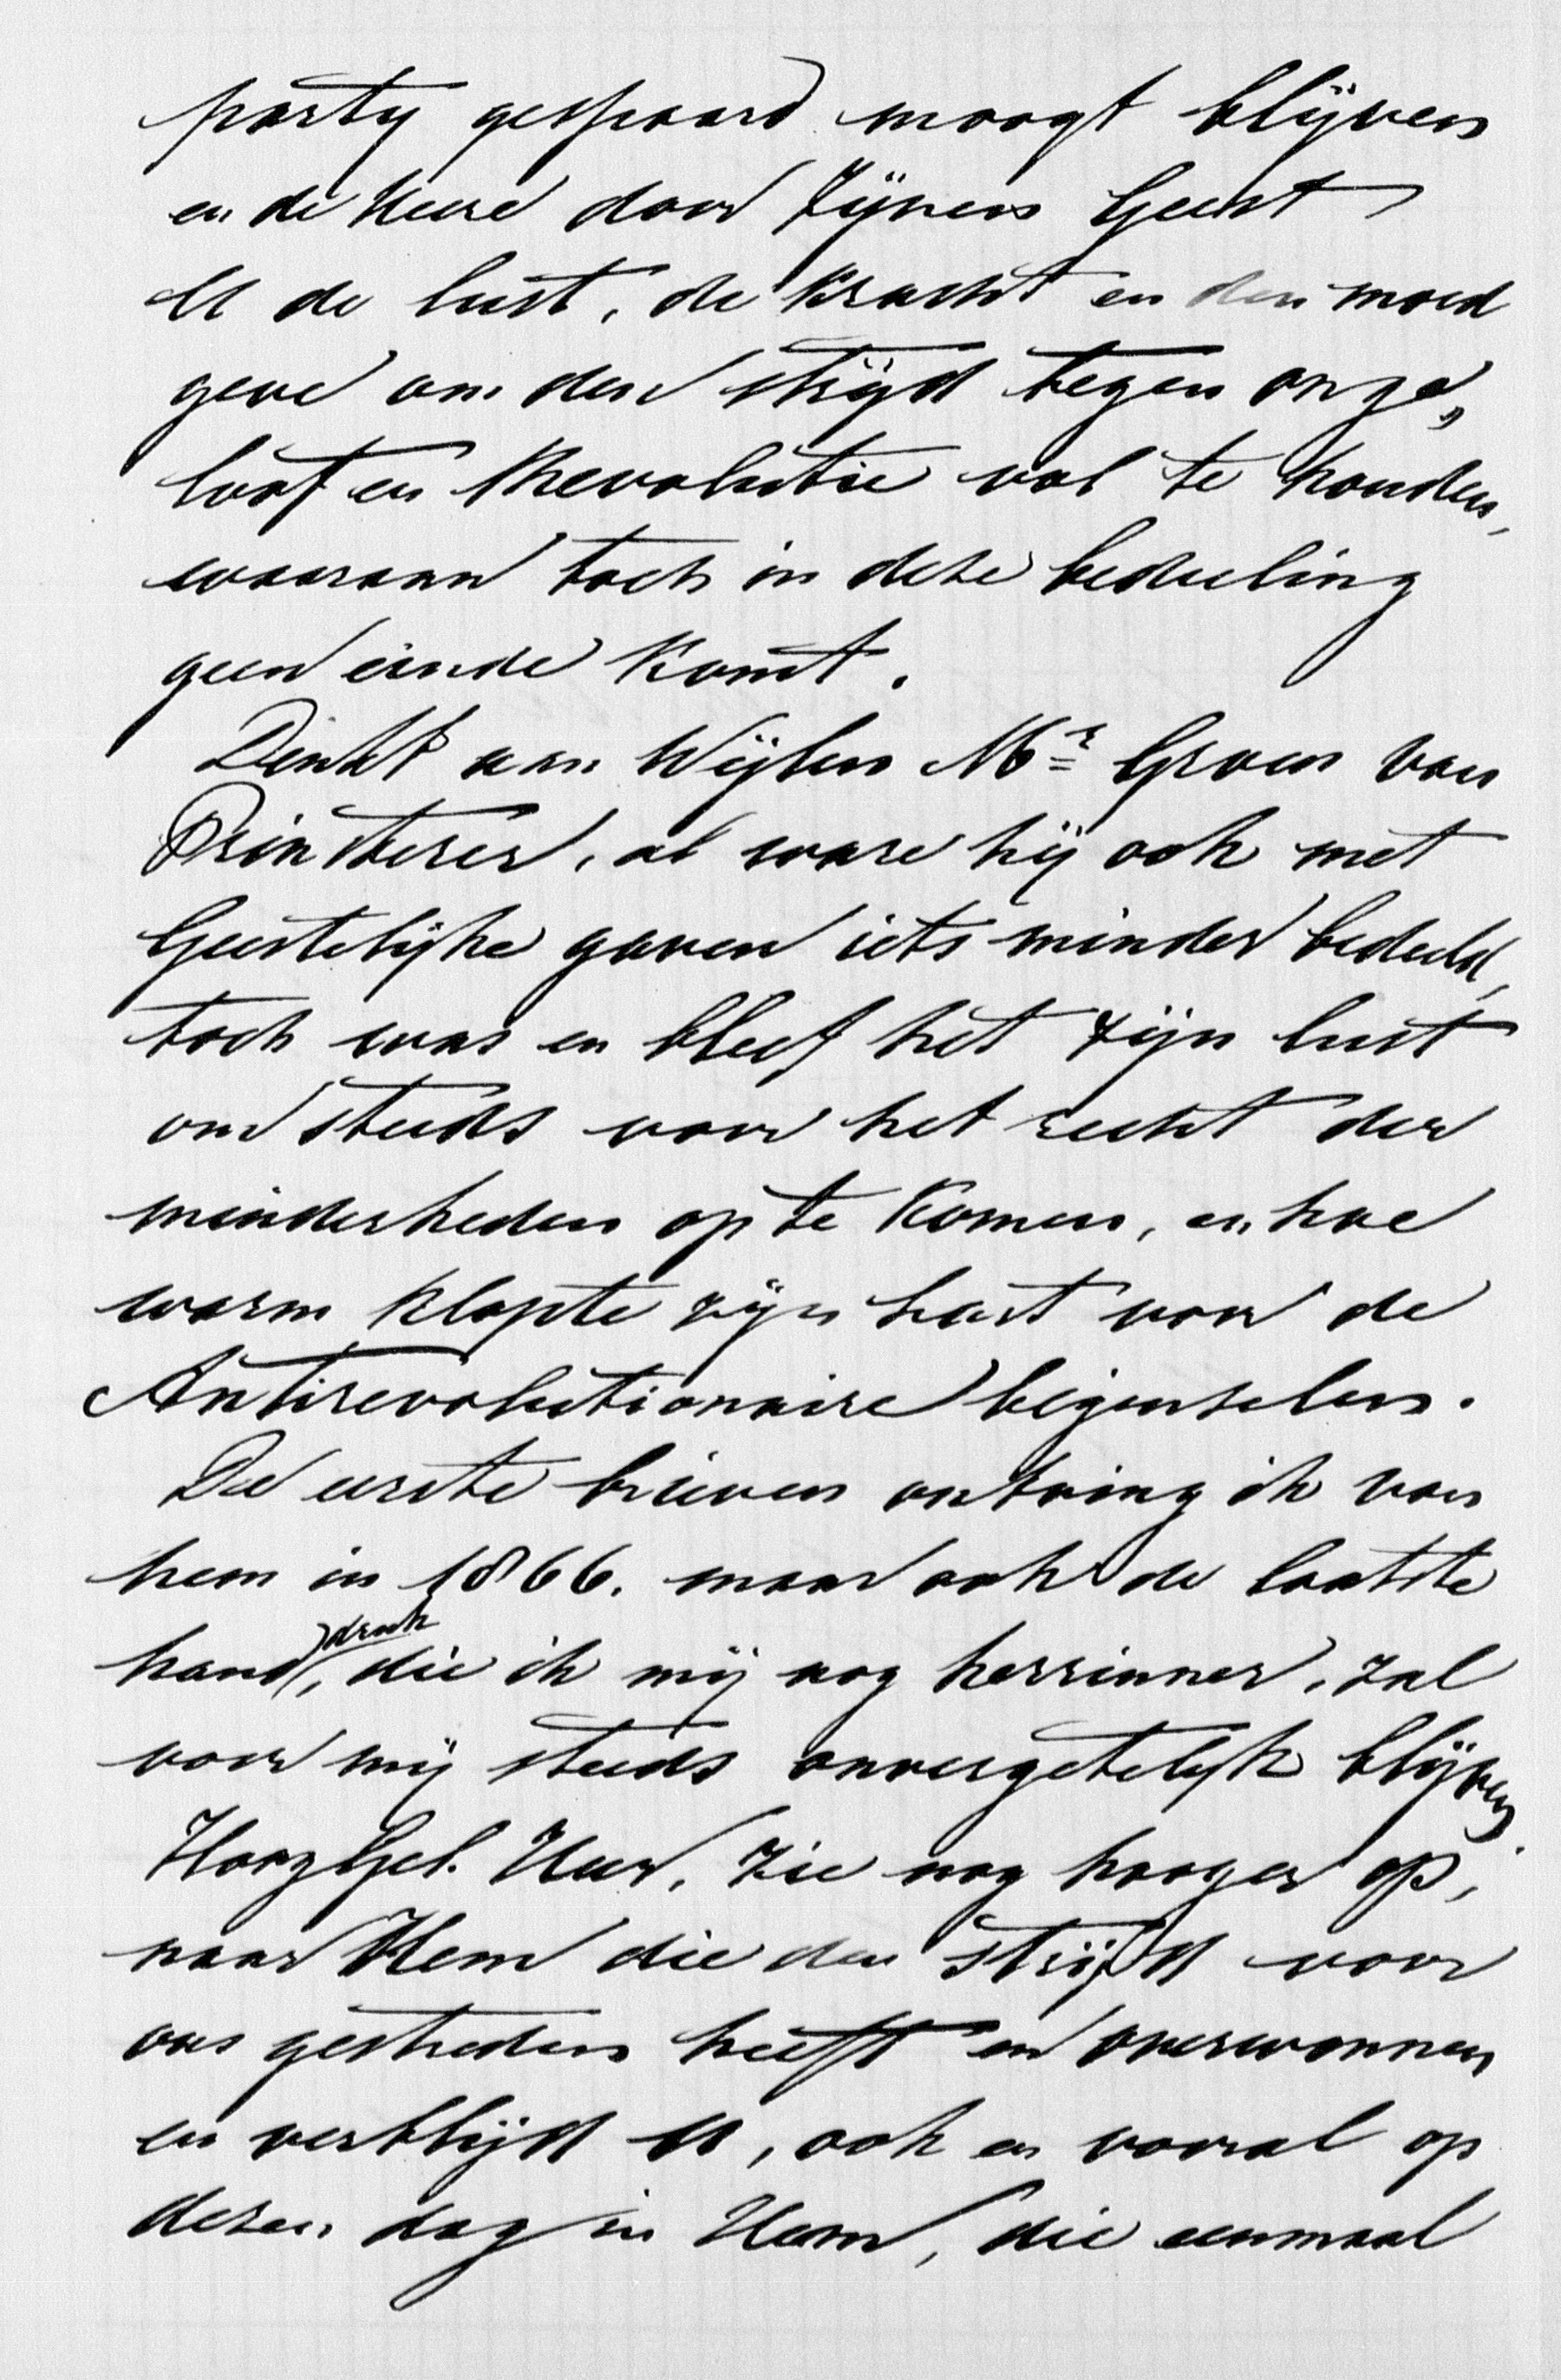 party gespaard moogt blijven
en de Heere door Zijnen Geest
U de lust, de kracht en den moed
geve om den strijd tegen onge„
loof en Revolutie vol te houden,
waaraan toch in deze bedeeling
geen einde komt.
Denkt aan Wijlen Mr= Groen van
Prinsterer, al ware hij ook met
Geestelijke gaven iets minder bedeeld,
toch was en bleef het zijn lust
om steeds voor het recht der
minderheden op te komen, en hoe
warm klopte zijn hart voor de
Antirevolutionaire beginselen.
De eerste brieven ontving ik van
hem in 1866. maar ook de laatste
handdruk, die ik mij nog herrinner, zal
voor mij steeds onvergetelijk blijven
HoogGel. Heer, Zie nog hooger op,
naar Hem die den strijd voor
ons gestreden heeft en overwonnen
en verblijdt U, ook en vooral op
dezen dag in Hem, die eenmaal